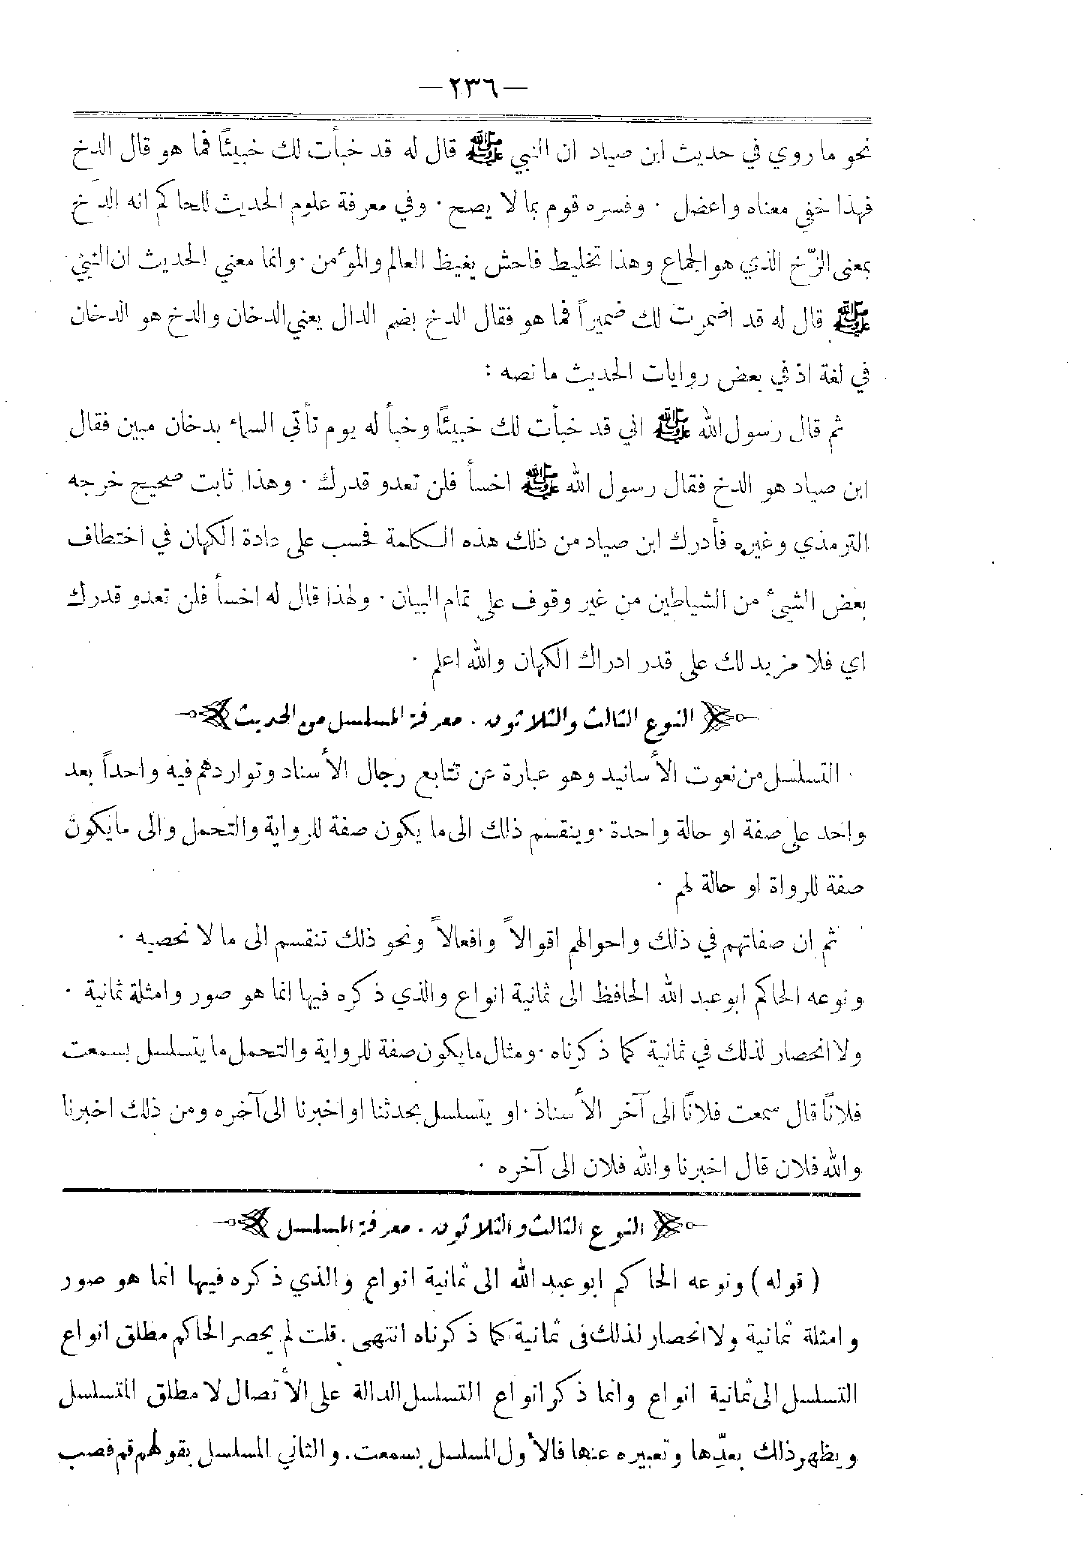 — ٢٣٦ —
نحو ما روي في حديث ابن صياد ان النبي ﷺ قال له قد خبأت لك خبيئًا فما هو قال الدخ
فهذا خفي معناه واعضل · وفسره قوم بما لا يصح · وفي معرفة علوم الحديث للحاكم انه الدَخ
بمعنى الزّخ الذي هو الجماع وهذا تخليط فاحش يغيظ العالم والمؤمن · وانما معني الحديث ان النبي
ﷺ قال له قد اضمرت لك ضميراً فما هو فقال الدخ بضم الدال يعني الدخان والدخ هو الدخان
في لغة اذ في بعض روايات الحديث ما نصه :
ثم قال رسول الله ﷺ اني قد خبأت لك خبيئًا وخبأ له يوم تأتي السماء بدخان مبين فقال
ابن صياد هو الدخ فقال رسول الله ﷺ اخسأ فلن تعدو قدرك · وهذا ثابت صحيح خرجه
الترمذي وغيره فأدرك ابن صياد من ذلك هذه الكلمة فحسب على عادة الكهان في اختطاف
بعض الشيء من الشياطين من غير وقوف على تمام البيان · ولهذا قال له اخسأ فلن تعدو قدرك
اي فلا مزيد لك على قدر ادراك الكهان والله اعلم ·
النوع الثالث والثلاثون . معرفة المسلسل من الحديث
التسلسل من نعوت الأسانيد وهو عبارة عن تتابع رجال الأسناد وتواردهم فيه واحداً بعد
واحد على صفة او حالة واحدة · وينقسم ذلك الى ما يكون صفة للرواية والتحمل والى ما يكون
صفة للرواة او حالة لهم ·
ثم ان صفاتهم في ذلك واحوالهم اقوالاً وافعالاً ونحو ذلك تنقسم الى ما لا نحصيه ·
ونوعه الحاكم ابو عبد الله الحافظ الى ثمانية انواع والذي ذكره فيها انما هو صور وامثلة ثمانية ·
ولا انحصار لذلك في ثمانية كما ذكرناه · ومثال ما يكون صفة للرواية والتحمل ما يتسلسل بسمعت
فلانًا قال سمعت فلانًا الى آخر الأسناد · او يتسلسل بحدثنا او اخبرنا الى آخره ومن ذلك اخبرنا
والله فلان قال اخبرنا والله فلان الى آخره ·
النوع الثالث والثلاثون . معرفة المسلسل
( قوله ) ونوعه الحاكم ابو عبد الله الى ثمانية انواع والذي ذكره فيها انما هو صور
وامثلة ثمانية ولا انحصار لذلك فى ثمانية كما ذكرناه انتهى . قلت لم يحصر الحاكم مطلق انواع
التسلسل الى ثمانية انواع وانما ذكر انواع التسلسل الدالة على الأتصال لا مطلق المتسلسل
ويظهر ذلك بعدّها وتعبيره عنها فالأول المسلسل بسمعت . والثاني المسلسل بقولهم قم فصب